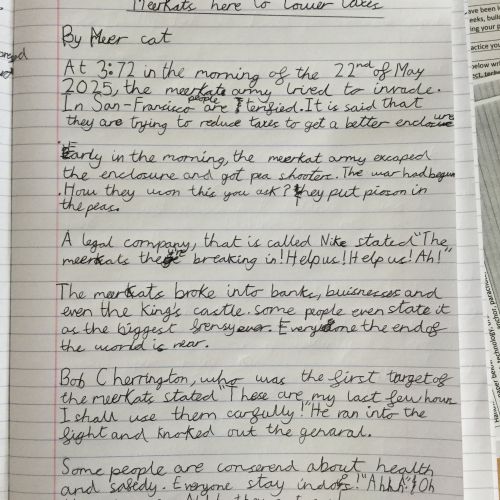 Meerkats here to lower taxes
By Meer cat
At 3:72 in the morning of the 22nd of May
2025, the meerkats army tried to invade.
In San-Francisco people are terified. It is said that
they are trying to reduce taxes to get a better enclosure
Early in the morning, the meerkat army excaped
the enclosure and got pea shooters. The war had begun
. How they won this you ask? they put pioson in
the peas.
A legal company, that is called Nike stated "The
meerkats they're breaking in! Help us! Help us! Ah!"
The meerkats broke into banks, buissnesses and
even the King's castle. some people even state it
as the biggest frensy ever. Everyone the end of
the world is near.
Bob Cherrington, who was the first target of
the meerkats stated "These are my last few hours
I shall use them carfully!" He ran into the
fight and knoked out the genaral.
Some people are conserend about health
and safedy. Everyone stay indors! "AhhA" "Oh